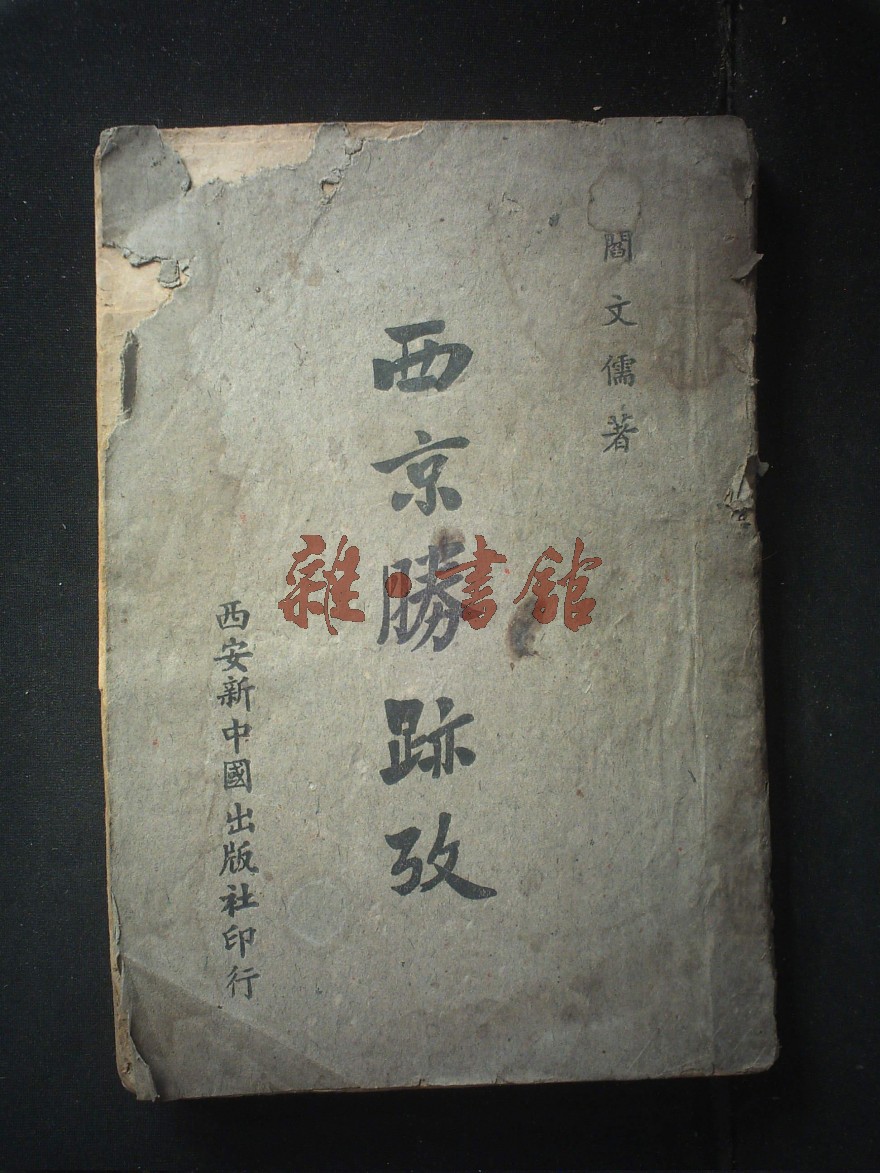 閻文儒著
西京勝跡攷
西安新中國出版社印行
雜·書館